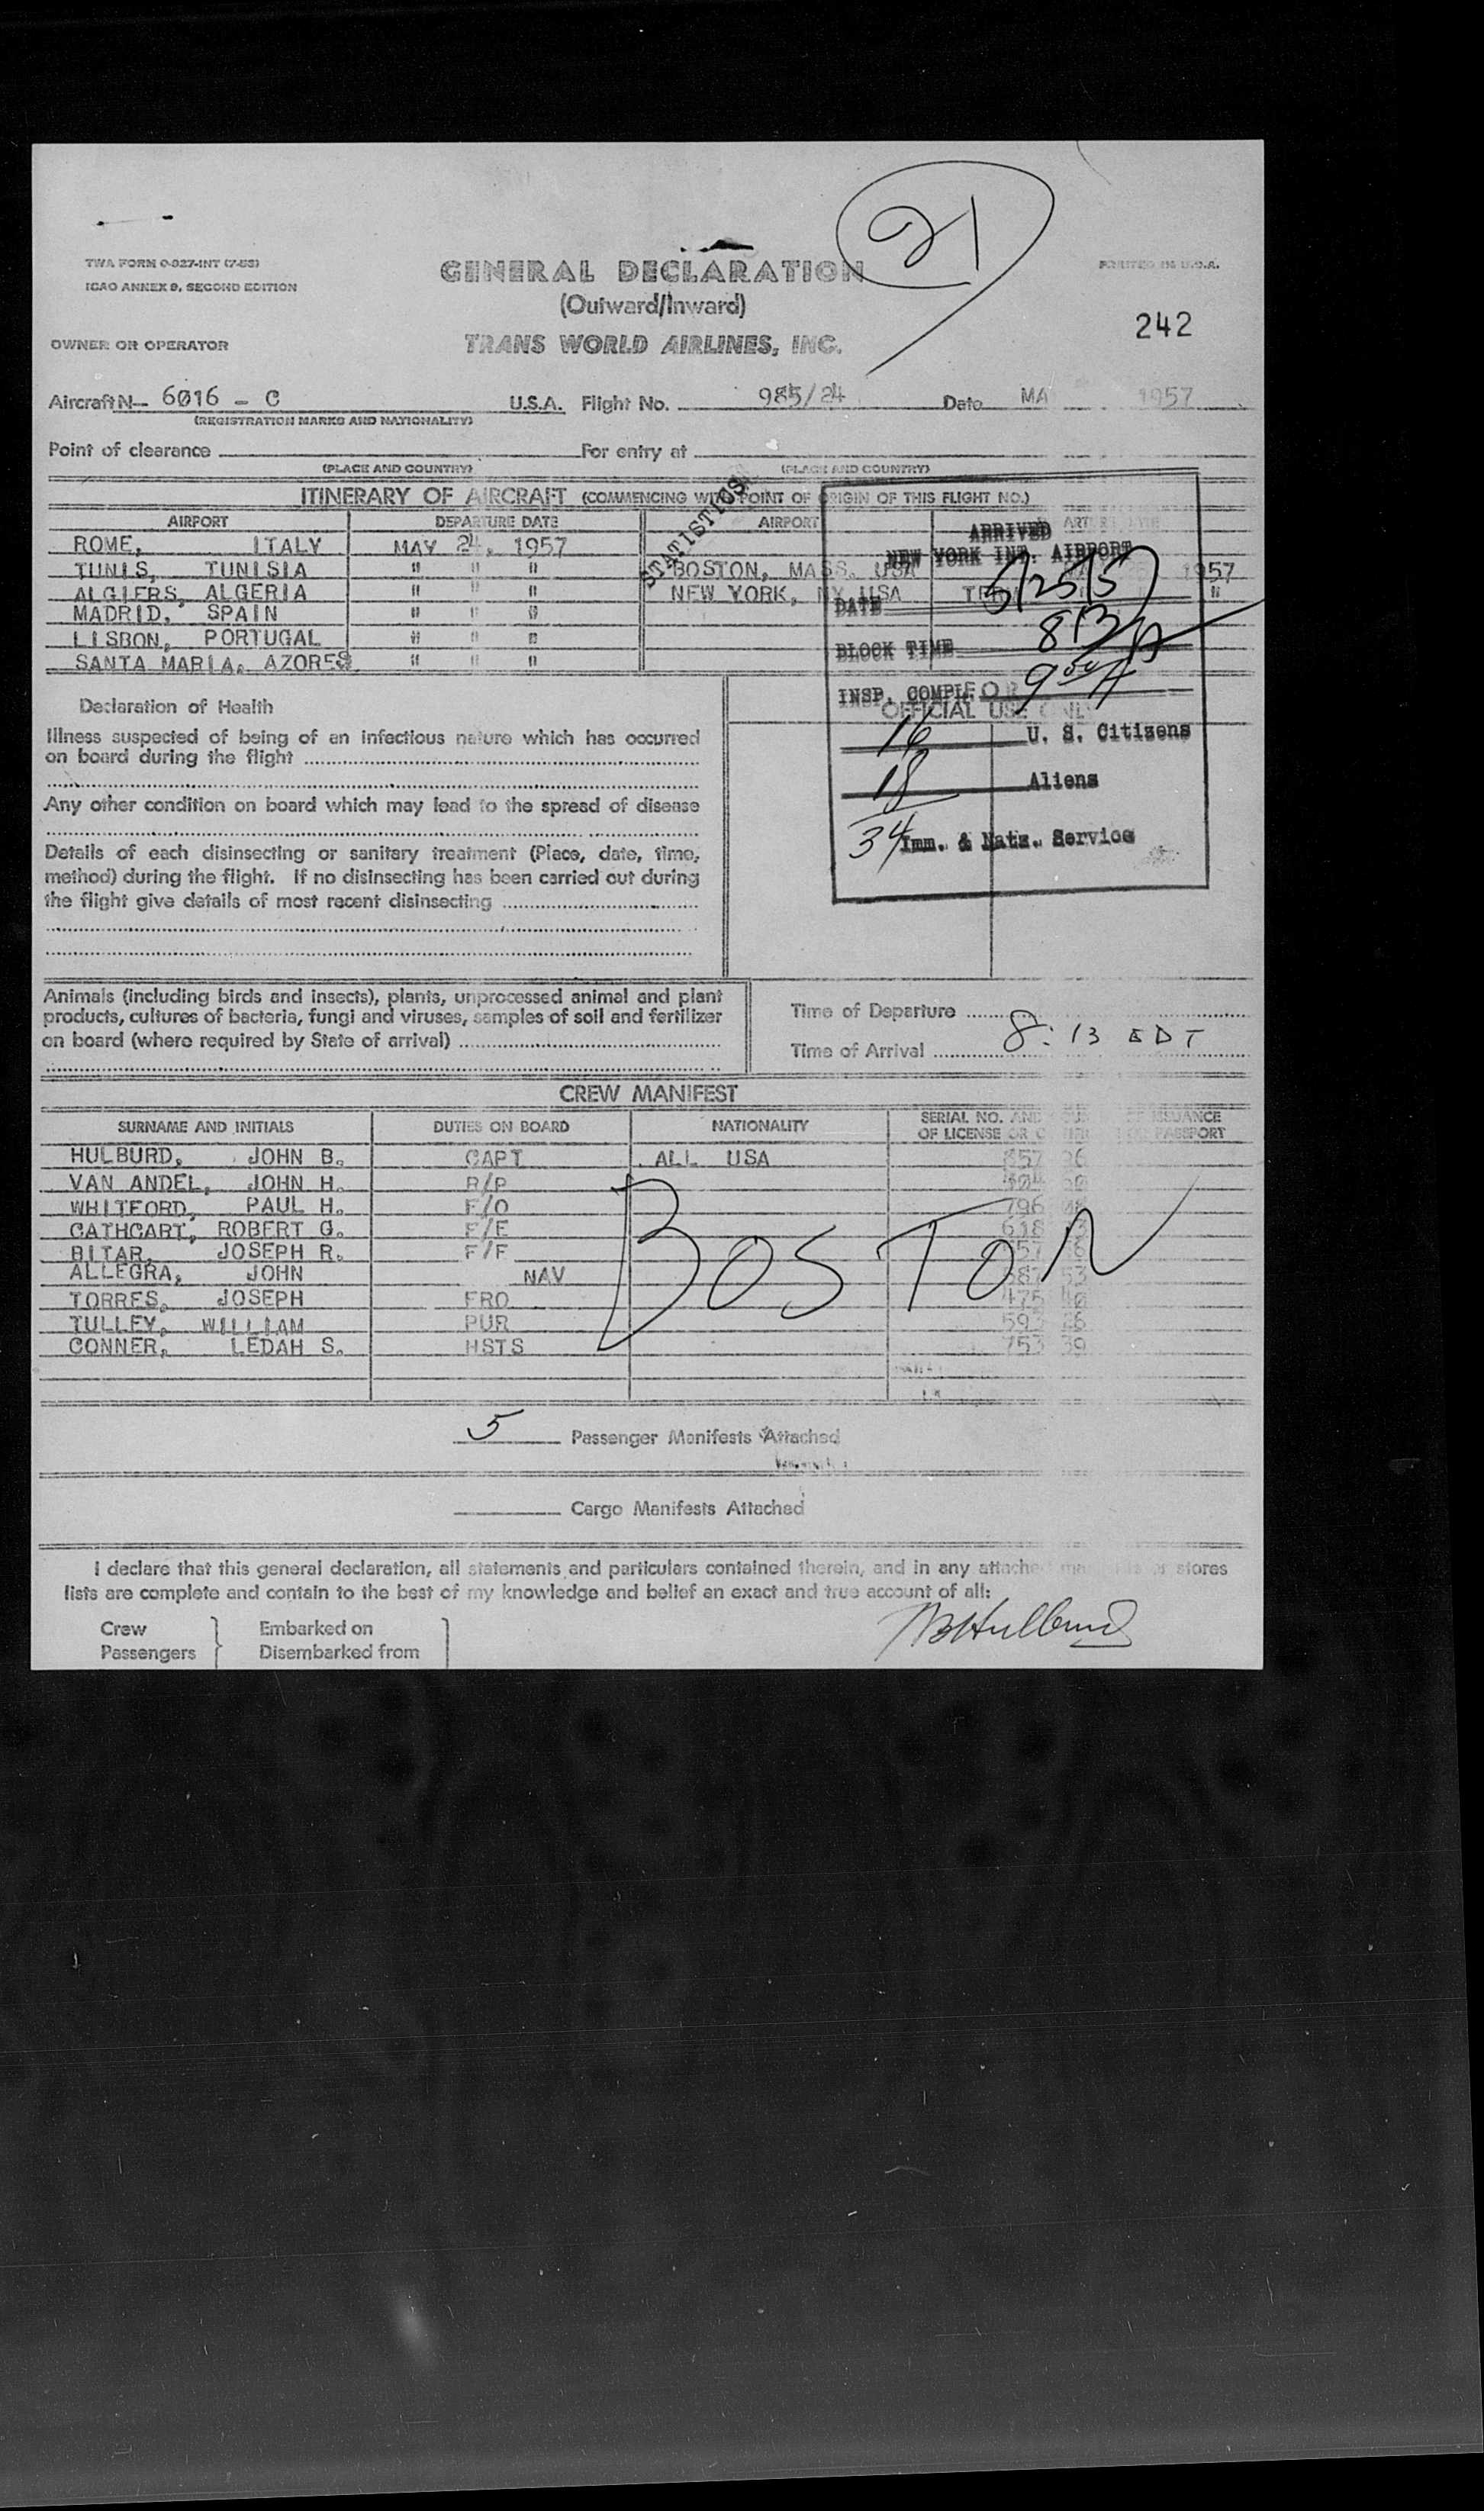 21
TWA FORM 0-027-INT (7-53)
GENERAL DECLARATION
PRINTED IN U.S.A.
ICAO ANNEX 9, SECOND EDITION
(Outward/Inward)
242
OWNER OR OPERATOR
TRANS WORLD AIRLINES, INC.
Aircraft N— 6016 - C U.S.A. Flight No. 985/24 Date MA 1957
(REGISTRATION MARKS AND NATIONALITY)
Point of clearance For entry at
(PLACE AND COUNTRY) (PLACE AND COUNTRY)
ITINERARY OF AIRCRAFT (COMMENCING WITH POINT OF ORIGIN OF THIS FLIGHT NO.)
AIRPORT DEPARTURE DATE AIRPORT
STATISTICS
ROME, ITALY MAY 24, 1957
TUNIS, TUNISIA " " " BOSTON, MASS. USA 1957
ALGIERS, ALGERIA " " " NEW YORK, NY USA "
MADRID, SPAIN " " "
LISBON, PORTUGAL " " "
SANTA MARIA, AZORES " " "
ARRIVED
NEW YORK INT. AIRPORT
DATE 5/25/57
BLOCK TIME 813 A
INSP. COMPL. 9 A
FOR
OFFICIAL USE ONLY
16 U. S. Citizens
18 Aliens
34 Imm. & Natz. Service
Declaration of Health
Illness suspected of being of an infectious nature which has occurred
on board during the flight
Any other condition on board which may lead to the spread of disease
Details of each disinsecting or sanitary treatment (Place, date, time,
method) during the flight. If no disinsecting has been carried out during
the flight give details of most recent disinsecting
Animals (including birds and insects), plants, unprocessed animal and plant
products, cultures of bacteria, fungi and viruses, samples of soil and fertilizer
on board (where required by State of arrival)
Time of Departure
Time of Arrival 8:13 EDT
CREW MANIFEST
SURNAME AND INITIALS DUTIES ON BOARD NATIONALITY SERIAL NO. AND ISSUANCE
OF LICENSE OR PASSPORT
HULBURD, JOHN B. CAPT ALL USA
VAN ANDEL, JOHN H. R/P
WHITFORD, PAUL H. F/O
CATHCART, ROBERT G. F/E
BITAR, JOSEPH R. F/F
ALLEGRA, JOHN NAV
TORRES, JOSEPH FRO
TULLEY, WILLIAM PUR
CONNER, LEDAH S. HSTS
BOSTON
5 Passenger Manifests Attached
Cargo Manifests Attached
I declare that this general declaration, all statements and particulars contained therein, and in any attached stores
lists are complete and contain to the best of my knowledge and belief an exact and true account of all:
Crew Embarked on
Passengers Disembarked from
JBHulburd